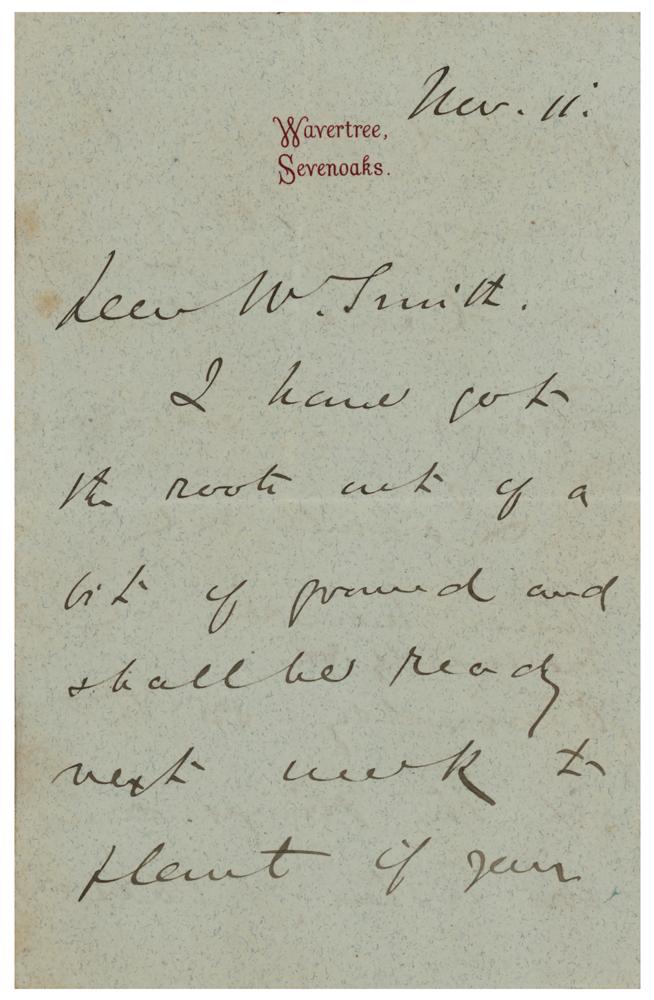 Nov. 11.
Wavertree,
Sevenoaks.
Dear W. Smith.
I have got
the roots out of a
bit of ground and
shall be ready
next week to
plant if your